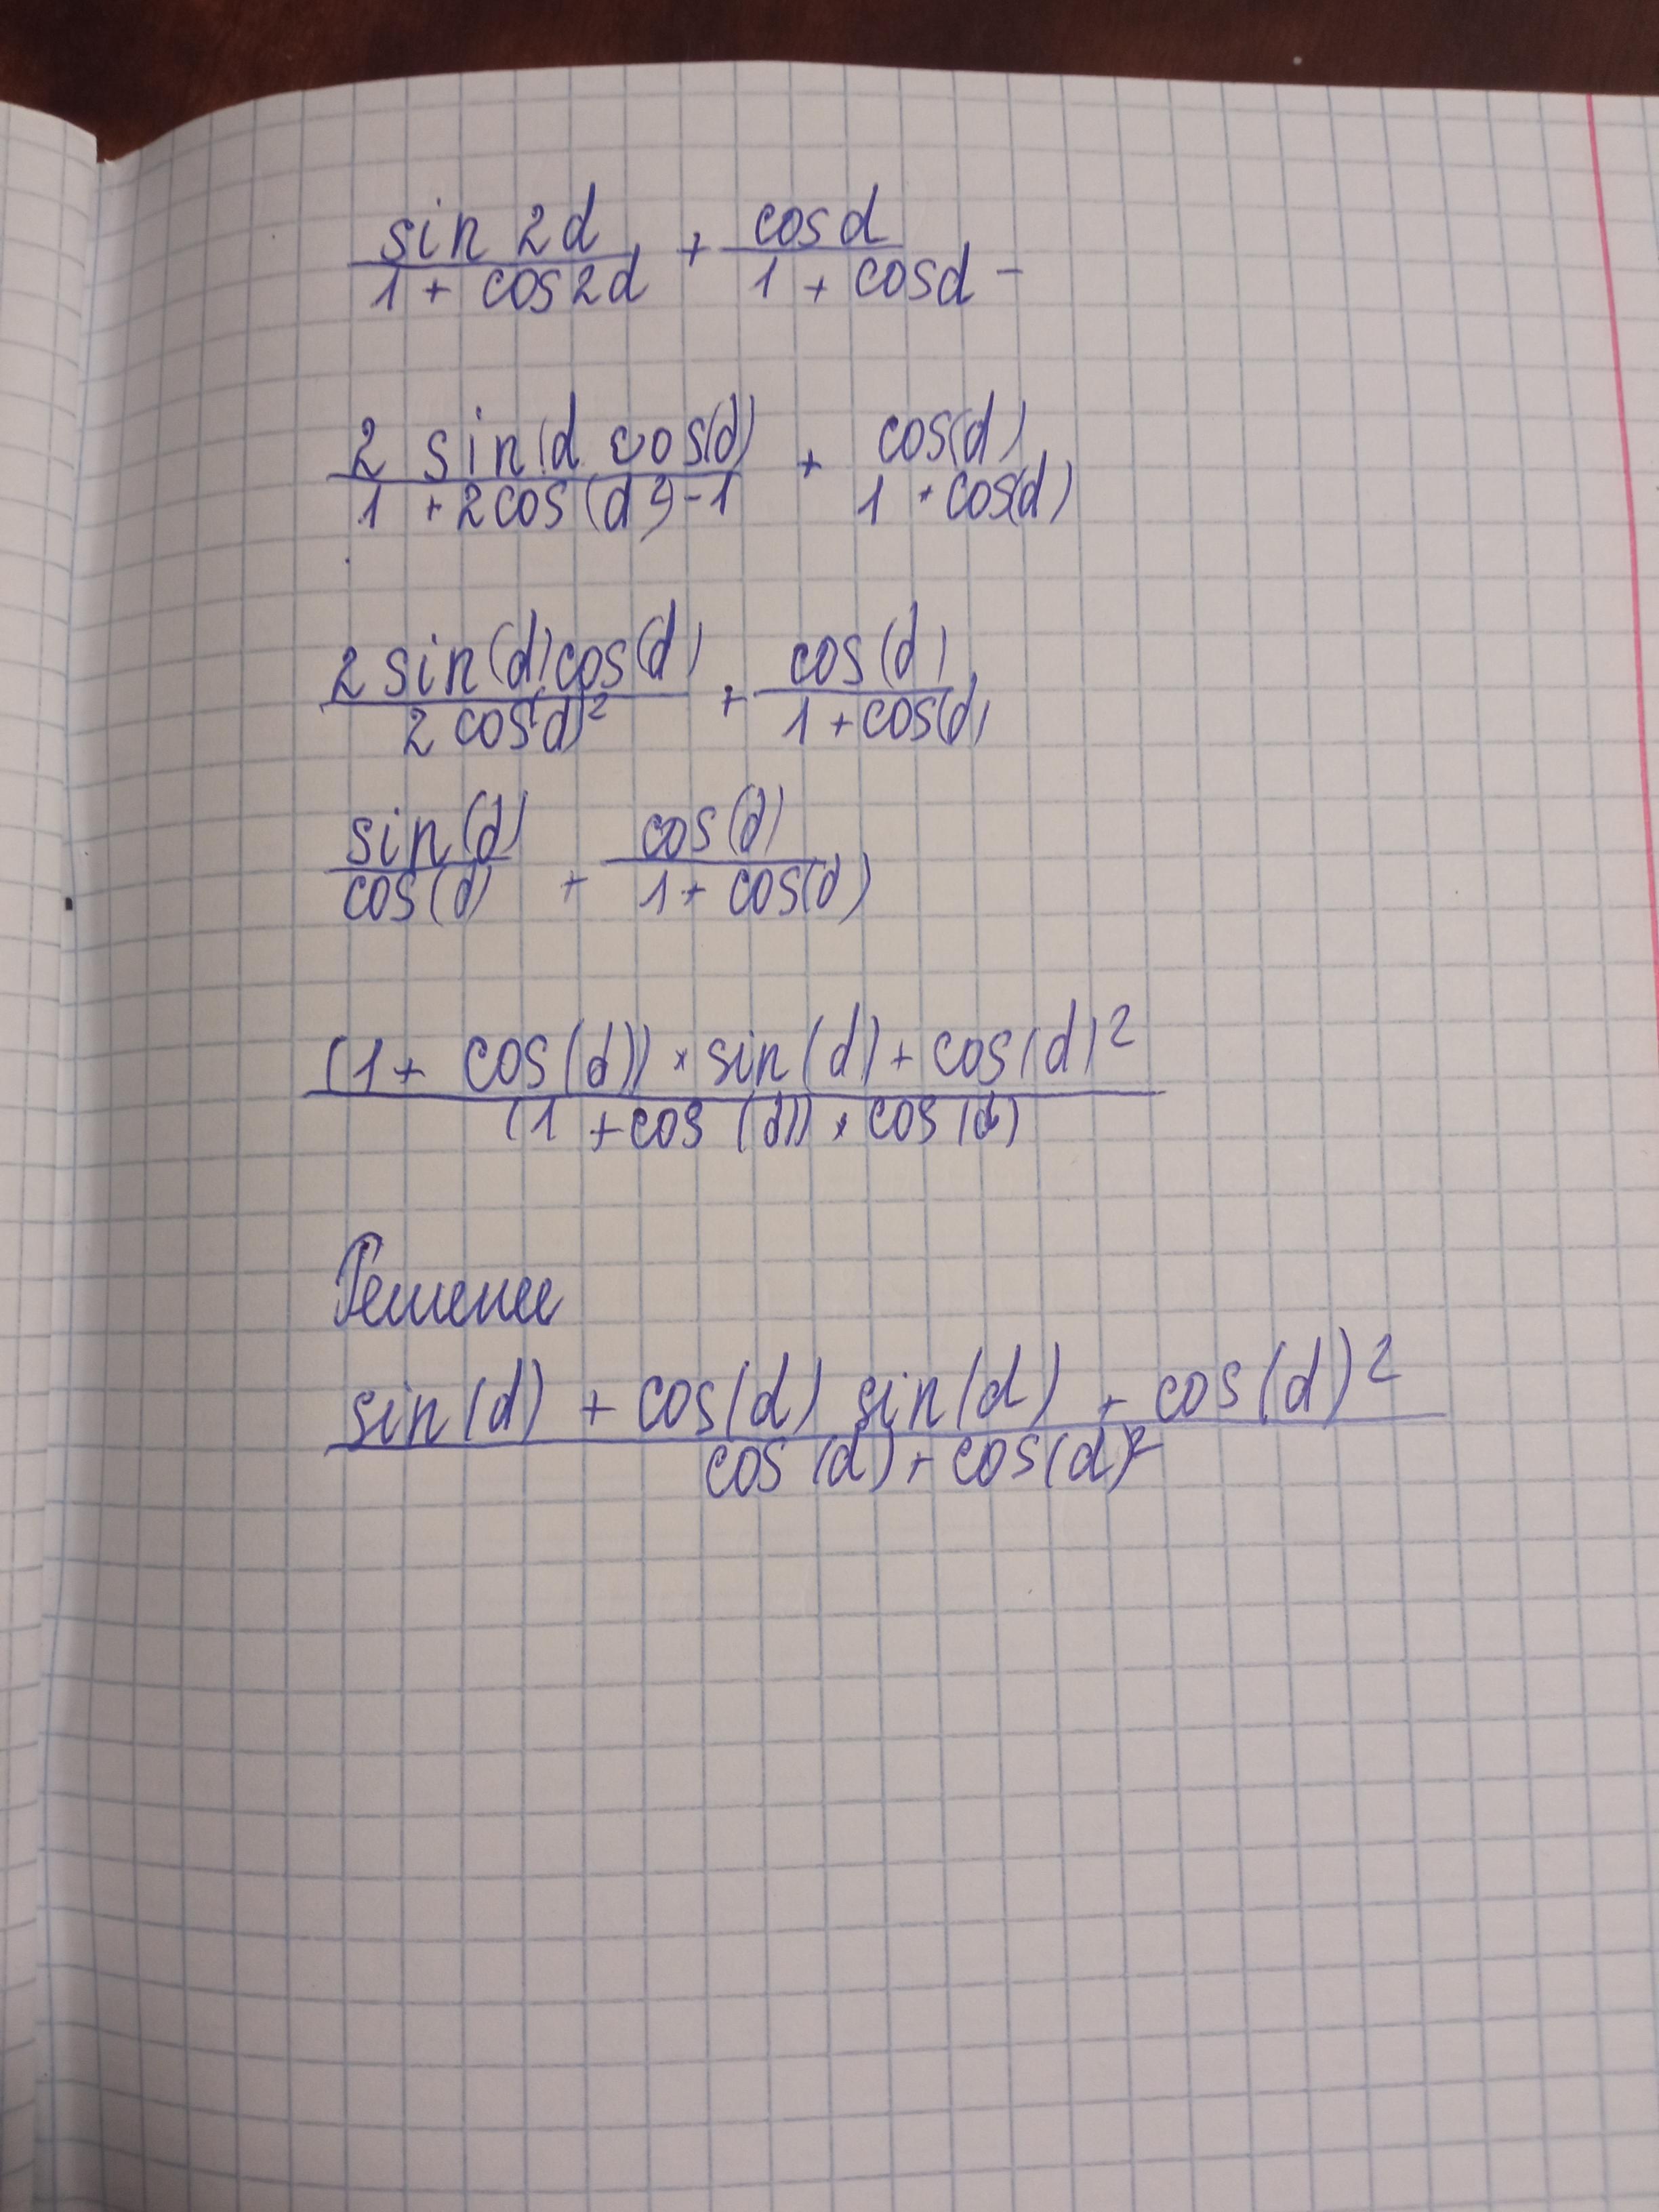 sin 2d + cos d
1 + cos 2d 1 + cosd -
2 sin(d cos(d) + cos(d)
1 + 2cos(d²)-1 1 + cos(d)
2 sin(d)cos(d) + cos(d)
2 cos(d)² 1 + cos(d)
sin(d) + cos(d)
cos(d) 1 + cos(d)
(1 + cos(d)) × sin(d) + cos(d)²
(1 + cos(d)) × cos(d)
Решение
sin(d) + cos(d) sin(d) + cos(d)²
cos(d) + cos(d)²